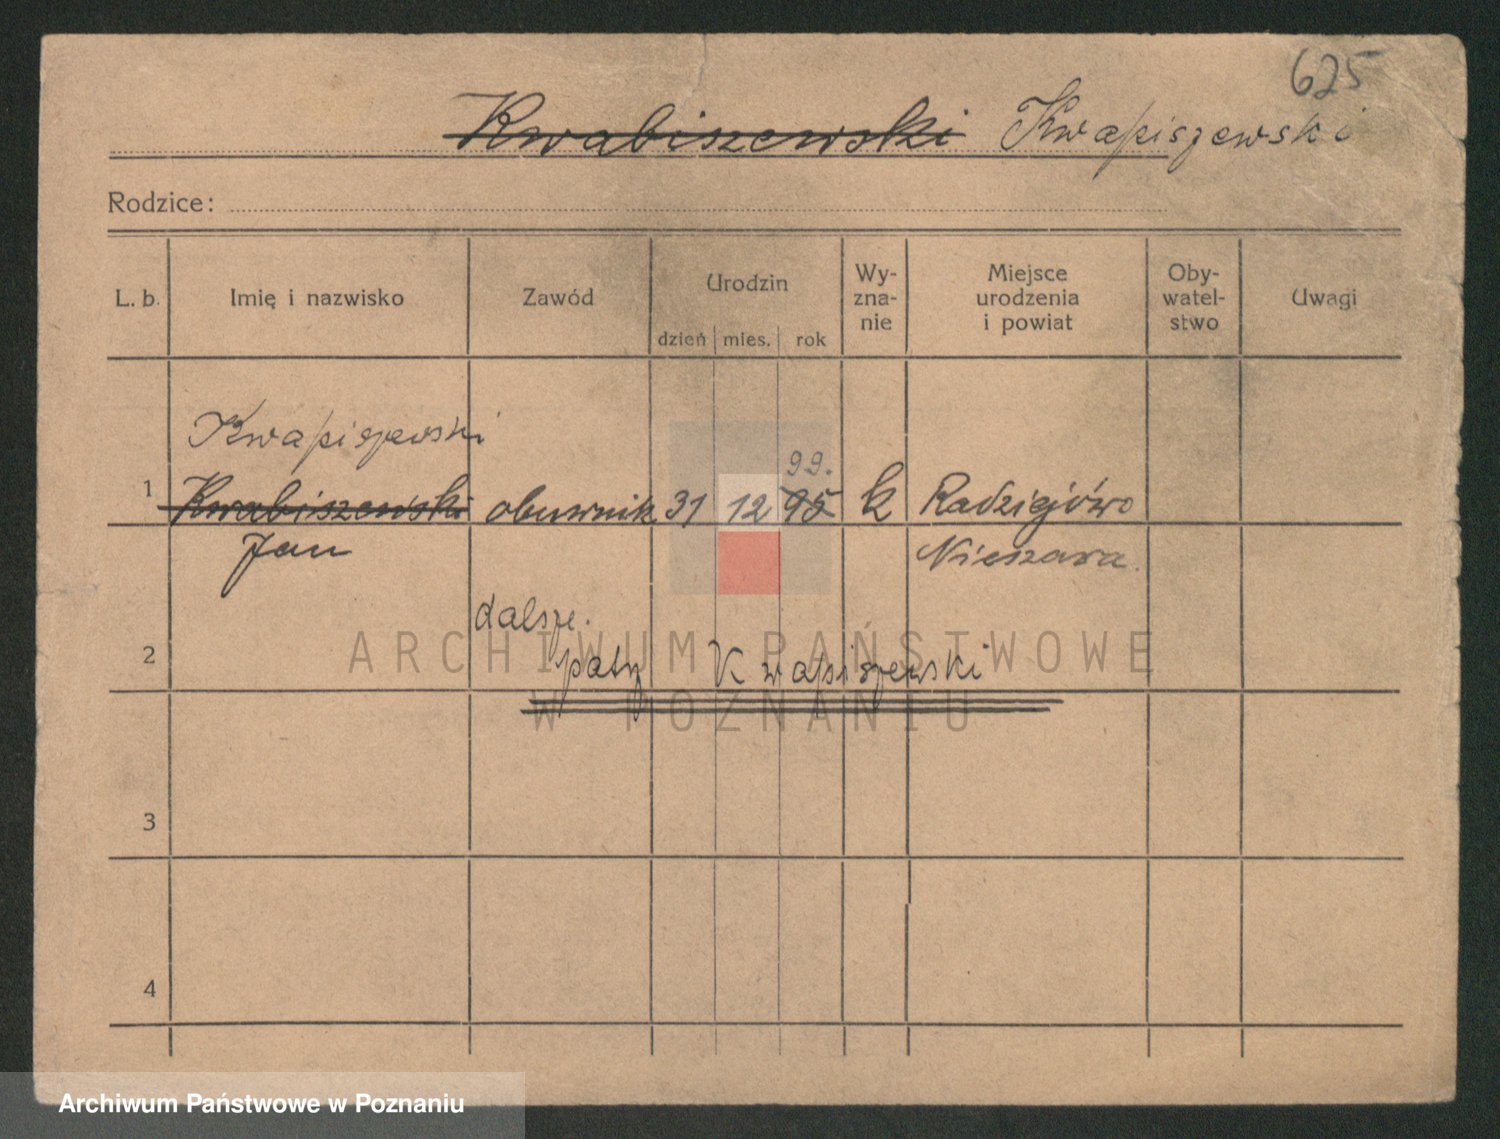 625
Kwabiszewski Kwapiszewski
Rodzice:
L. b. Imię i nazwisko Zawód Urodzin dzień mies. rok Wy-zna-nie Miejsce urodzenia i powiat Oby-watel-stwo Uwagi
Kwapiszewski
99.
1 Kwabiszewski obuwnik 31 12 95 k Radziejowo
Jan Nieszawa.
dalsze.
2 patrz Kwapiszewski
3
4
ARCHIWUM PAŃSTWOWE
W POZNANIU
Archiwum Państwowe w Poznaniu